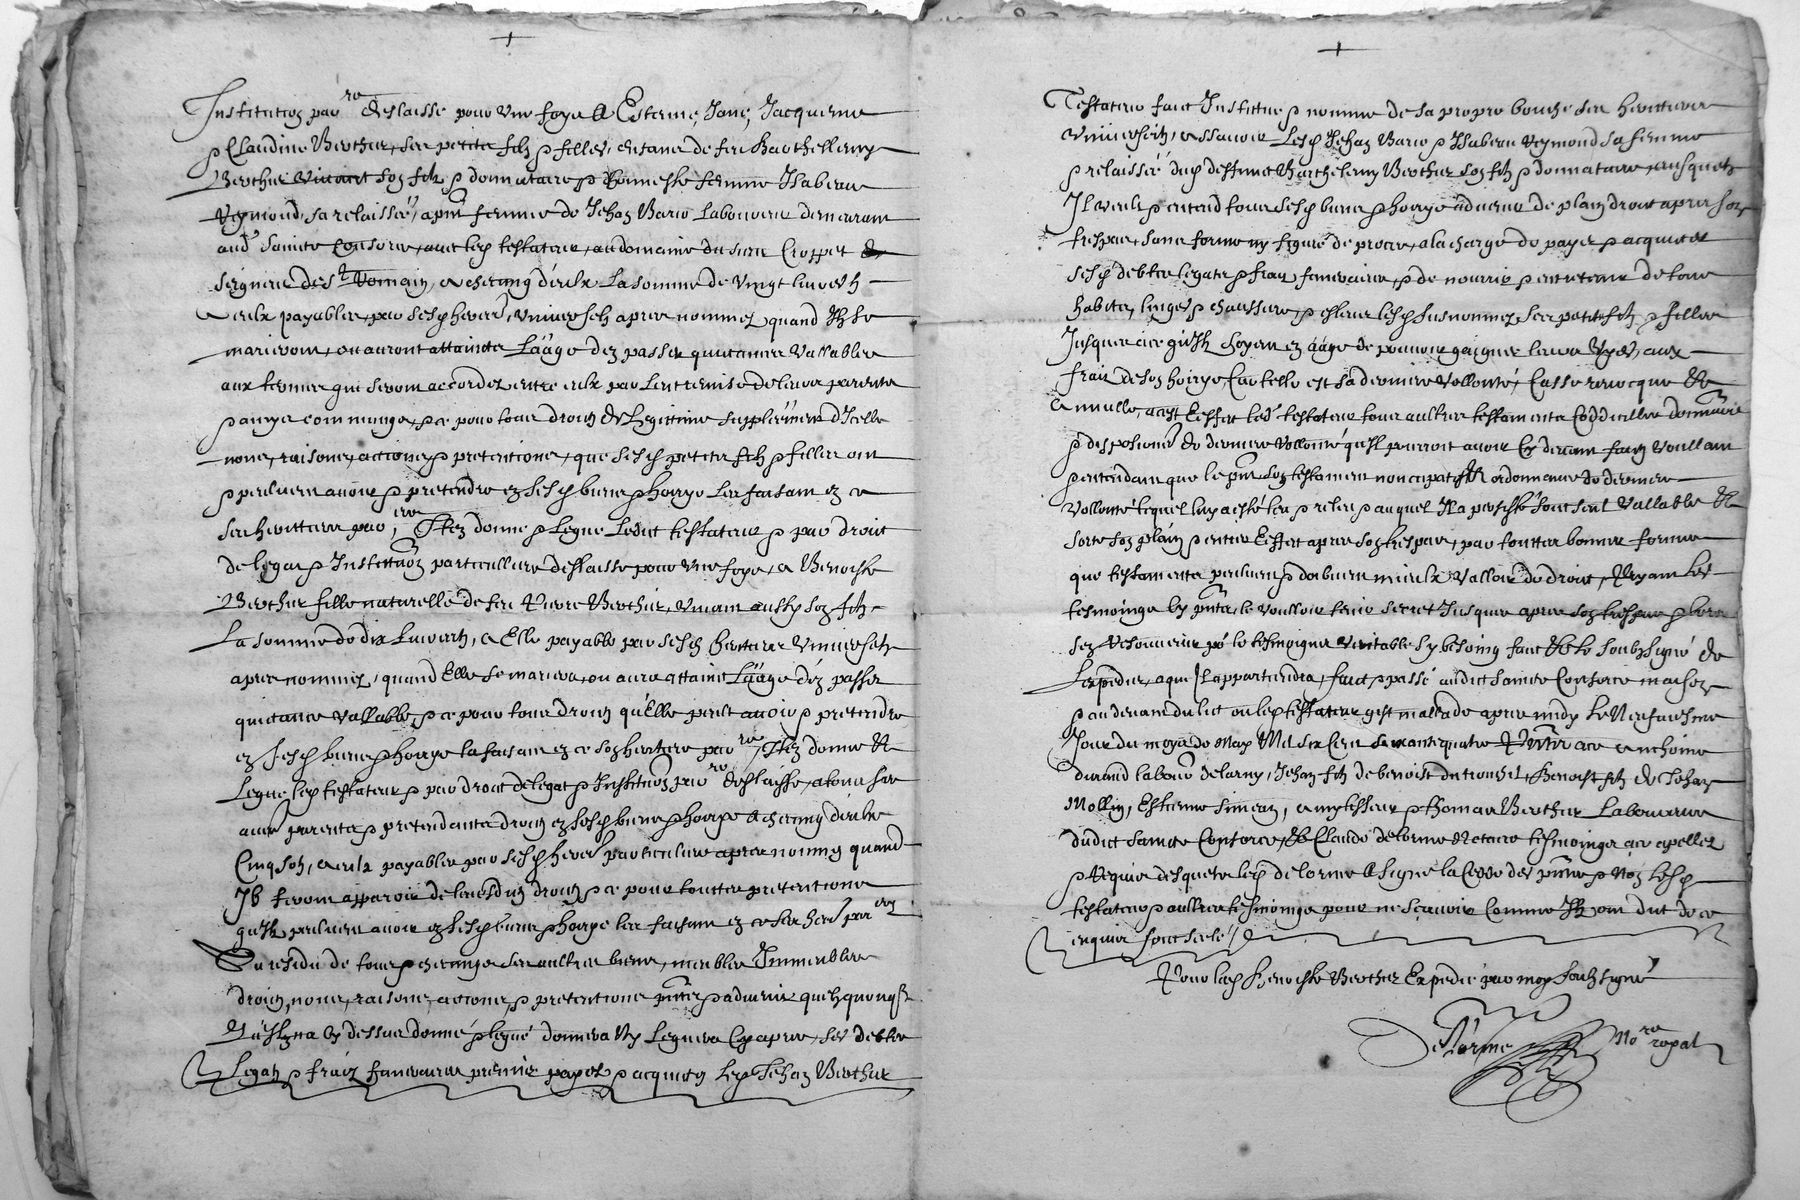 Institution par.re deslaisse pour une foye a Estienne, Jane, Jacquesme
& Claudine Berthier, ses petits filz & filles, enfans de feu Barthellemy
Berthier vivant son filz & donnataire & d'honneste femme Isabeau
Reymond, sa relaissée, a pnt femme de Jehan Bario laboureur demeurant
aud. Sainte Consorce, avec led. testateur, au domaine du sieur Croppet
seigneur de St Romain, a chescung d'eulx la somme de vingt livres tz
a eulx payables par sesd. herers universelz apres nommez quand ilz se
marieront, ou auront attaintz l'aage d'en passer quictances vallables
aux termes que seront accordez entre eulx par l'entremise de leurs parents
& amys commungs, & ce pour tous droitz de legitime supplement d'icelle
noms, raisons, actions & pretentions, que sesd. petits filz & filles ont
& peulvent avoir & pretendre en sesd. biens & hoirye les faisant en ce
ses heritiers par.res Item donne & legue ledict testateur & par droict
de legat & institution particulliere deslaisse pour une foye, a Benoiste
Berthier fille naturelle de feu Pierre Berthier, vivant aussy son filz
la somme de dix livres tz, a elle payable par sesd. heritiers universelz
apres nommez, quand elle se mariera, ou aura attaint l'aage d'en passer
quictance vallable, & ce pour tous droitz qu'elle peult avoir & pretendre
en sesd. biens & hoirye la faisant en ce son heritiere par.re Item donne &
legue led. testateur & par droict de legat & institution par.re deslaisse, a tous ses
aultres parents & pretendantz droitz en sesd. biens & hoirye a chescung d'eulx
cinq solz, a eulx payables par sesd. herers particuliere apres nommez quand
ilz feront apparoir de leursdits droitz & ce pour touttes pretentions
qu'ilz peulvent avoir en sesd. biens & hoirye les faisant en ce ses herers par.ers
Du residu de tous & chescungs ses aultres biens, meubles immeubles
droitz, noms, raisons, actions & pretentions pntz & advenir quelquonques
qu'il n'a cy dessus donné & legué donnera ny leguera cy apres, ses debtes
legatz & fraiz funeraires premier payes & acquictes led. Jehan Berthier
Testateur faict institue & nomme de sa propre bouche ses heritiers
universelz, a sçavoir lesd. Jehan Bario & Isabeau Reymond sa femme
& relaissée dud. deffunct Barthelemy Berthier son filz & donnataire, ausquelz
il veult & entend tous sesd. biens & hoirye advenir de plain droict apres son
trespas, sans forme ny figure de proces, a la charge de payer & acquicter
sesd. debtes legatz & fraiz funeraires, & de nourrir & entretenir de tous
habitz, linges & chaussure, & eslever lesd. susnommez ses petits filz & filles
jusques a ce qu'ilz soyent en aage de pouvoir gaigner leurs vyes, aux
fraiz de son hoirye car telle est sa derniere vollonté, casse revocque &
annulle, a cest effect led. testateur tous aultres testaments codicilles donnations
& dispositions de derniere vollonté qu'il pourroit avoir cy devant faitz voullant
& entendant que le pnt son testament noncupatif & ordonnance de derniere
vollonté lequel luy a esté leu & releu & auquel il a persisté soit seul vallable &
sorte son plain & entier effect apres son trespas, par touttes bonnes formes
que testaments peulvent & doibvent mieulx valloir de droict, priant les
tesmoings cy pntz, le voulloir tenir secret jusques apres son trespas & lors
s'en resouvenir po. le tesmoigner veritable sy besoing faict & le soubzsigné de
l'expedier, a qui il appartiendra, faict & passé audict Sainte Consorce maison
& au devant du lict ou led. testateur gist mallade apres midy le neufviesme
jour du moys de May mil six cens soixante quatre pntz a ce Anthoine
Durand labour. delarny, Jehan filz de Benoist dutronsil, Benoist filz de Jehan
Mollin, Estienne Simean, a my tessieur & Thomas Berthier laboureur
dudict Sainte Consorce, & Claude Delorme notaire tesmoings a ce apellez
& requis desquelz led. Delorme a signé la cedde des pntes & non lesd.
testateur & aultres tesmoings pour ne sçavoir comme ilz ont dict de ce
enquis sont scelé
Pour lad. Benoiste Berthier expedié par moy soubzsigné
Delorme no.re royal